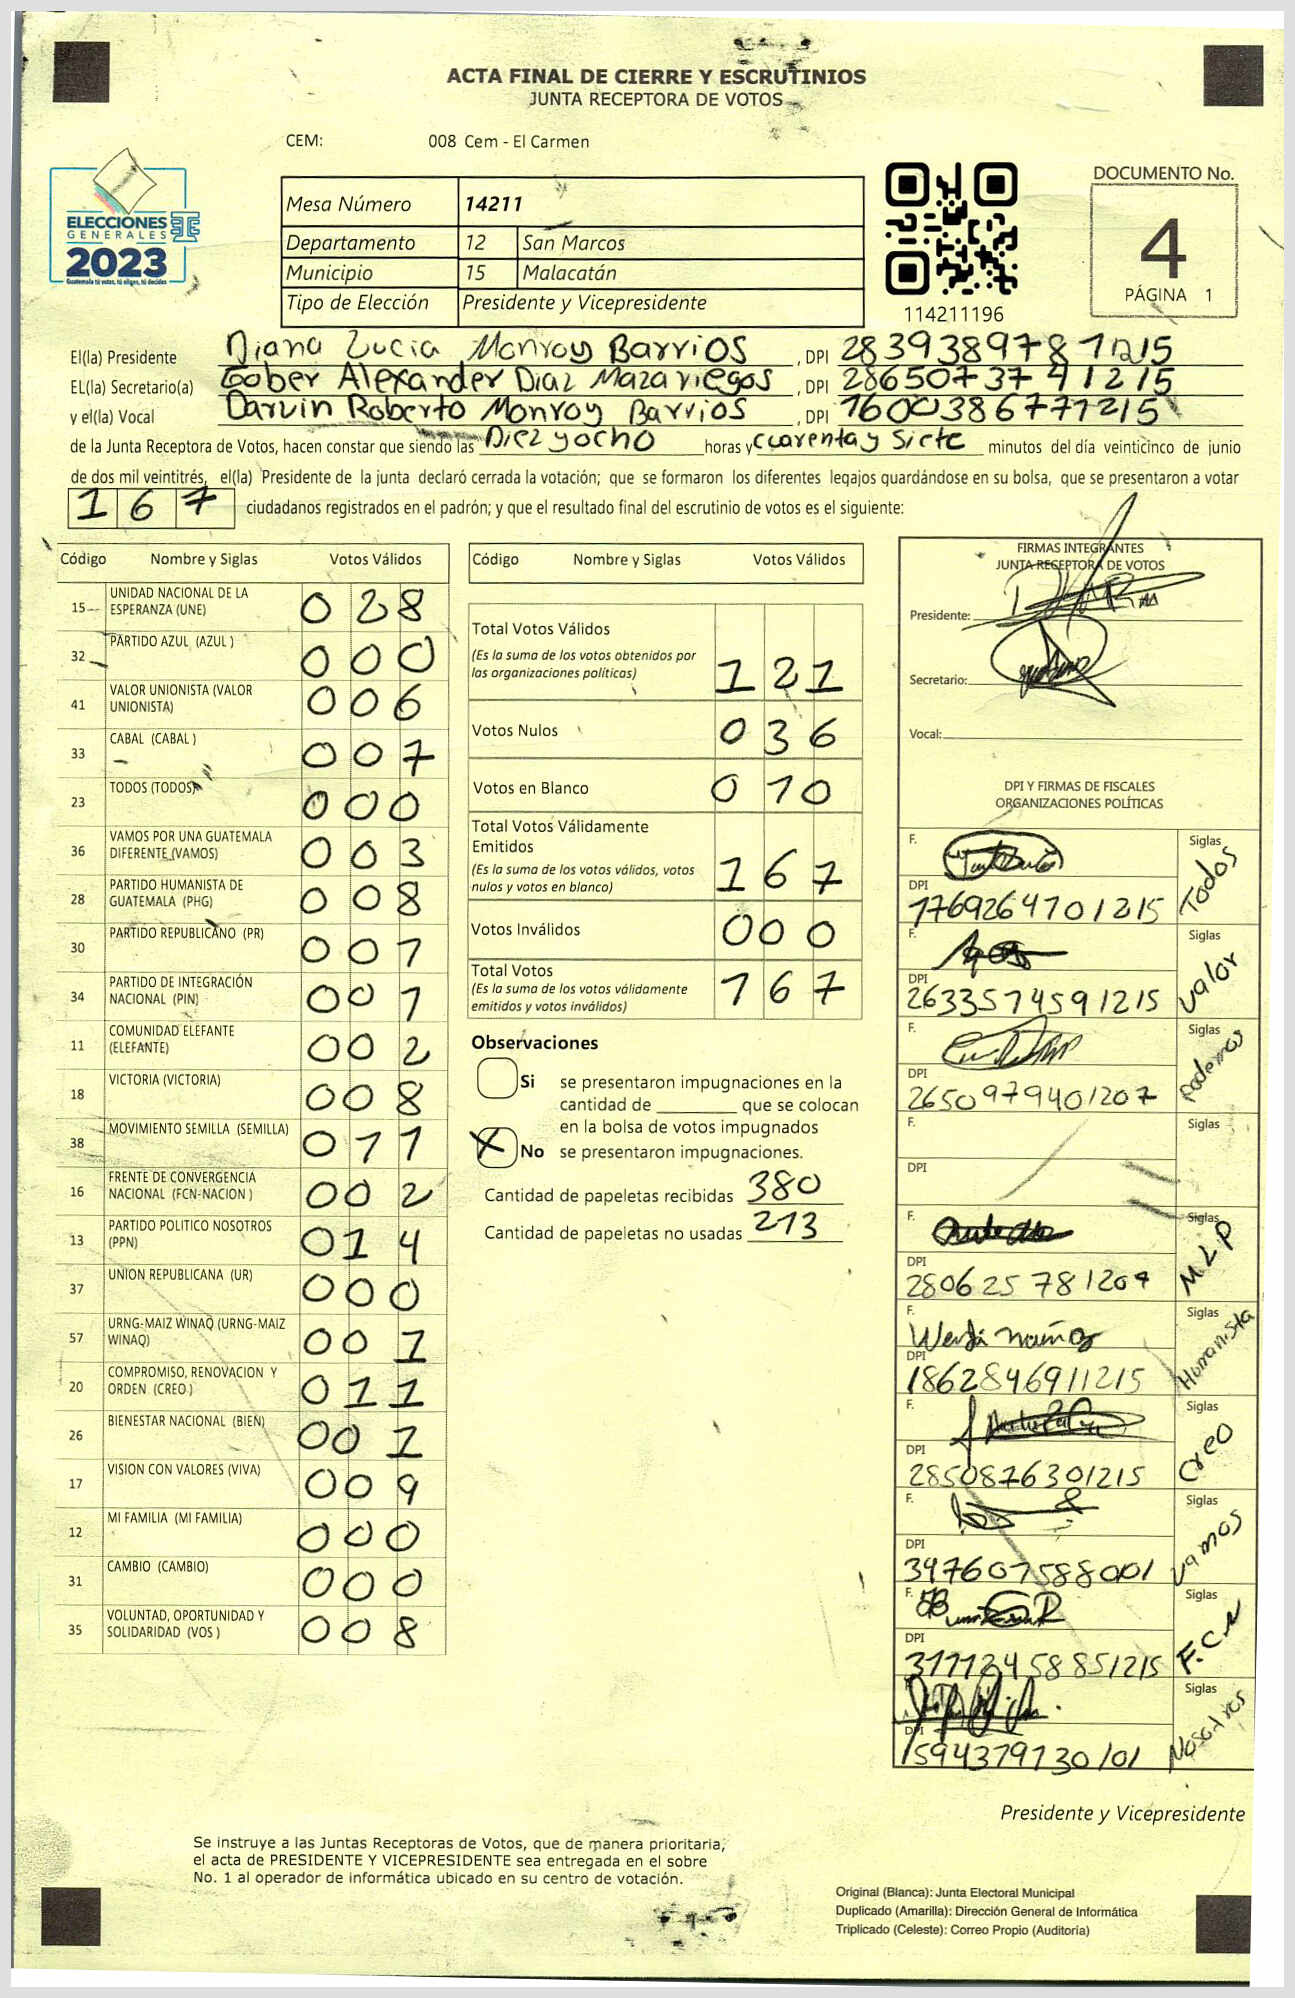 ACTA FINAL DE CIERRE Y ESCRUTINIOS
JUNTA RECEPTORA DE VOTOS
CEM: 008 Cem - El Carmen
ELECCIONES
GENERALES
2023
Guatemala tú votas, tú eliges, tú decides
Mesa Número 14211
Departamento 12 San Marcos
Municipio 15 Malacatán
Tipo de Elección Presidente y Vicepresidente
114211196
DOCUMENTO No.
4
PÁGINA 1
El(la) Presidente Diana Lucia Monroy Barrios, DPI
EL(la) Secretario(a) Gober Alexander Diaz Mazariegos, DPI 2865073741215
y el(la) Vocal Darvin Roberto Monroy Barrios, DPI 1600386771215
de la Junta Receptora de Votos, hacen constar que siendo las Diez y ocho horas y cuarenta y siete minutos del día veinticinco de junio
de dos mil veintitrés, el(la) Presidente de la junta declaró cerrada la votación; que se formaron los diferentes legajos guardándose en su bolsa, que se presentaron a votar
167 ciudadanos registrados en el padrón; y que el resultado final del escrutinio de votos es el siguiente:
Código Nombre y Siglas Votos Válidos
15 UNIDAD NACIONAL DE LA ESPERANZA (UNE) 028
32 PARTIDO AZUL (AZUL ) 000
41 VALOR UNIONISTA (VALOR UNIONISTA) 006
33 CABAL (CABAL ) 007
23 TODOS (TODOS) 000
36 VAMOS POR UNA GUATEMALA DIFERENTE (VAMOS) 003
28 PARTIDO HUMANISTA DE GUATEMALA (PHG) 008
30 PARTIDO REPUBLICANO (PR) 001
34 PARTIDO DE INTEGRACIÓN NACIONAL (PIN) 001
11 COMUNIDAD ELEFANTE (ELEFANTE) 002
18 VICTORIA (VICTORIA) 008
38 MOVIMIENTO SEMILLA (SEMILLA) 011
16 FRENTE DE CONVERGENCIA NACIONAL (FCN-NACION ) 002
13 PARTIDO POLITICO NOSOTROS (PPN) 014
37 UNION REPUBLICANA (UR) 000
57 URNG-MAIZ WINAQ (URNG-MAIZ WINAQ) 001
20 COMPROMISO, RENOVACION Y ORDEN (CREO ) 011
26 BIENESTAR NACIONAL (BIEN) 001
17 VISION CON VALORES (VIVA) 009
12 MI FAMILIA (MI FAMILIA) 000
31 CAMBIO (CAMBIO) 000
35 VOLUNTAD, OPORTUNIDAD Y SOLIDARIDAD (VOS ) 008
Código Nombre y Siglas Votos Válidos
Total Votos Válidos
(Es la suma de los votos obtenidos por
las organizaciones políticas) 121
Votos Nulos 036
Votos en Blanco 010
Total Votos Válidamente
Emitidos
(Es la suma de los votos válidos, votos
nulos y votos en blanco) 167
Votos Inválidos 000
Total Votos
(Es la suma de los votos válidamente
emitidos y votos inválidos) 167
Observaciones
Si se presentaron impugnaciones en la
cantidad de ________ que se colocan
en la bolsa de votos impugnados
X No se presentaron impugnaciones.
Cantidad de papeletas recibidas 380
Cantidad de papeletas no usadas 213
FIRMAS INTEGRANTES
JUNTA RECEPTORA DE VOTOS
Presidente:
Secretario:
Vocal:
DPI Y FIRMAS DE FISCALES
ORGANIZACIONES POLÍTICAS
F. Siglas Todos
DPI 1769264701215
F. Siglas Valor
DPI 2633574591215
F. Siglas Podemos
DPI 2650979401207
F. Siglas
DPI
F. Siglas MLP
DPI
F. Siglas Humanista
DPI 1862846911215
F. Siglas Creo
DPI 2850876301215
F. Siglas Vamos
DPI
F. Siglas F.C.N
DPI
F. Siglas Nosotros
DPI 1594379730101
Presidente y Vicepresidente
Se instruye a las Juntas Receptoras de Votos, que de manera prioritaria,
el acta de PRESIDENTE Y VICEPRESIDENTE sea entregada en el sobre
No. 1 al operador de informática ubicado en su centro de votación.
Original (Blanca): Junta Electoral Municipal
Duplicado (Amarilla): Dirección General de Informática
Triplicado (Celeste): Correo Propio (Auditoría)